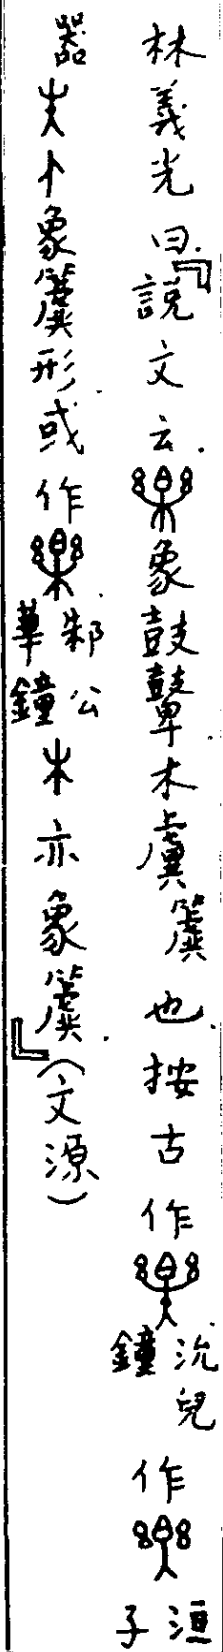 林義光曰『說文云樂象鼓鼙木虡簴也按古作樂沇兒鐘作樂洹子
器𠂇卜象簴形或作樂邾公華鐘木亦象簴』(文源)